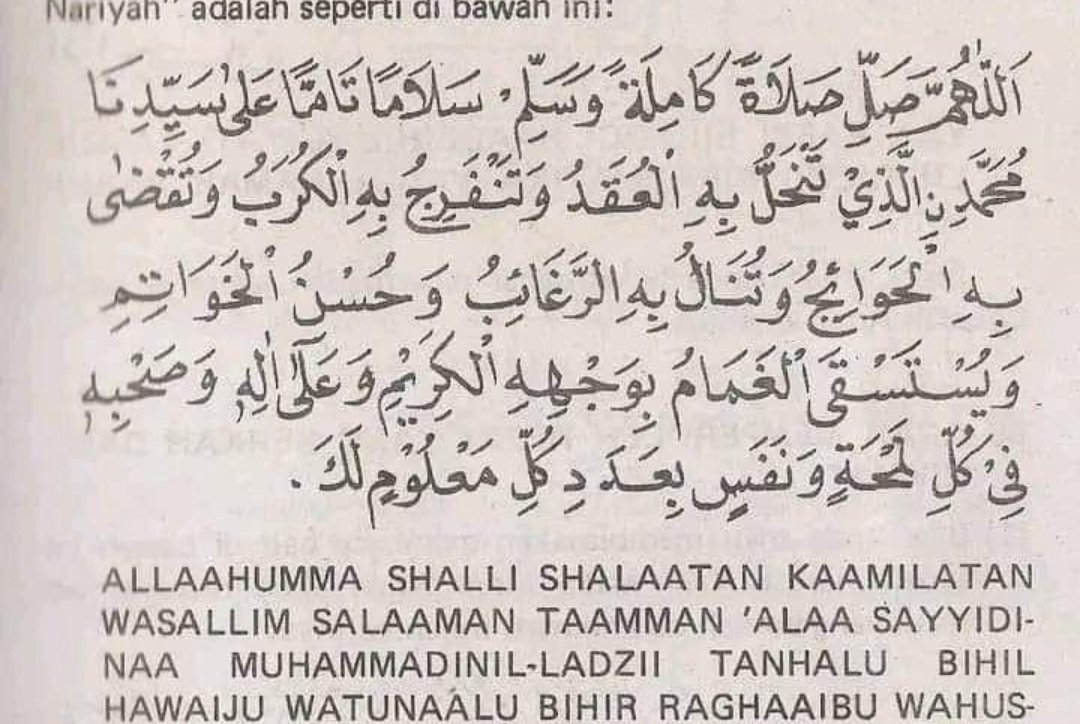 Nariyah" adalah seperti di bawah ini:
اَللّٰهُمَّ صَلِّ صَلَاةً كَامِلَةً وَسَلِّمْ سَلَامًا تَامًّا عَلٰى سَيِّدِنَا
مُحَمَّدِنِ الَّذِيْ تَنْحَلُّ بِهِ الْعُقَدُ وَتَنْفَرِجُ بِهِ الْكُرَبُ وَتُقْضٰى
بِهِ الْحَوَائِجُ وَتُنَالُ بِهِ الرَّغَائِبُ وَحُسْنُ الْخَوَاتِمِ
وَيُسْتَسْقَى الْغَمَامُ بِوَجْهِهِ الْكَرِيْمِ وَعَلٰى اٰلِهِ وَصَحْبِهِ
فِيْ كُلِّ لَمْحَةٍ وَنَفَسٍ بِعَدَدِ كُلِّ مَعْلُوْمٍ لَكَ .
ALLAAHUMMA SHALLI SHALAATAN KAAMILATAN
WASALLIM SALAAMAN TAAMMAN 'ALAA SAYYIDI-
NAA MUHAMMADINIL-LADZII TANHALU BIHIL
HAWAIJU WATUNAALU BIHIR RAGHAAIBU WAHUS-